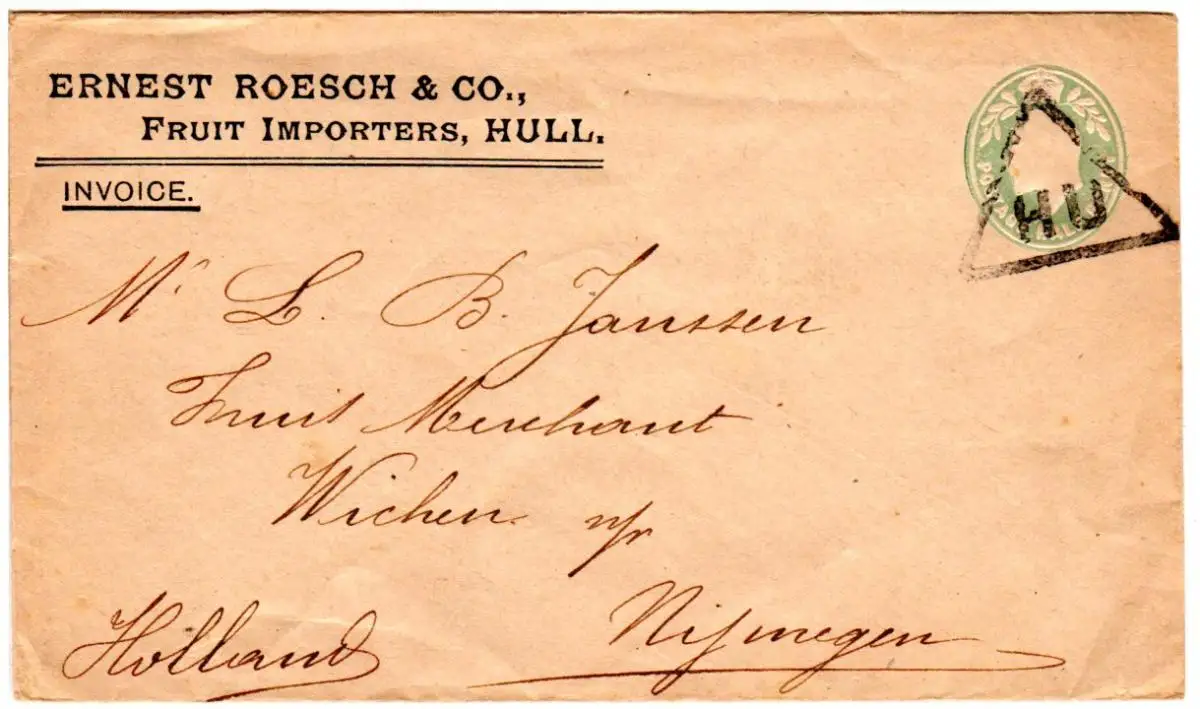 ERNEST ROESCH & CO.,
FRUIT IMPORTERS, HULL.
INVOICE.
HU
Mr L. B. Janssen
Fruit Merchant
Wichen n/r
Nijmegen
Holland